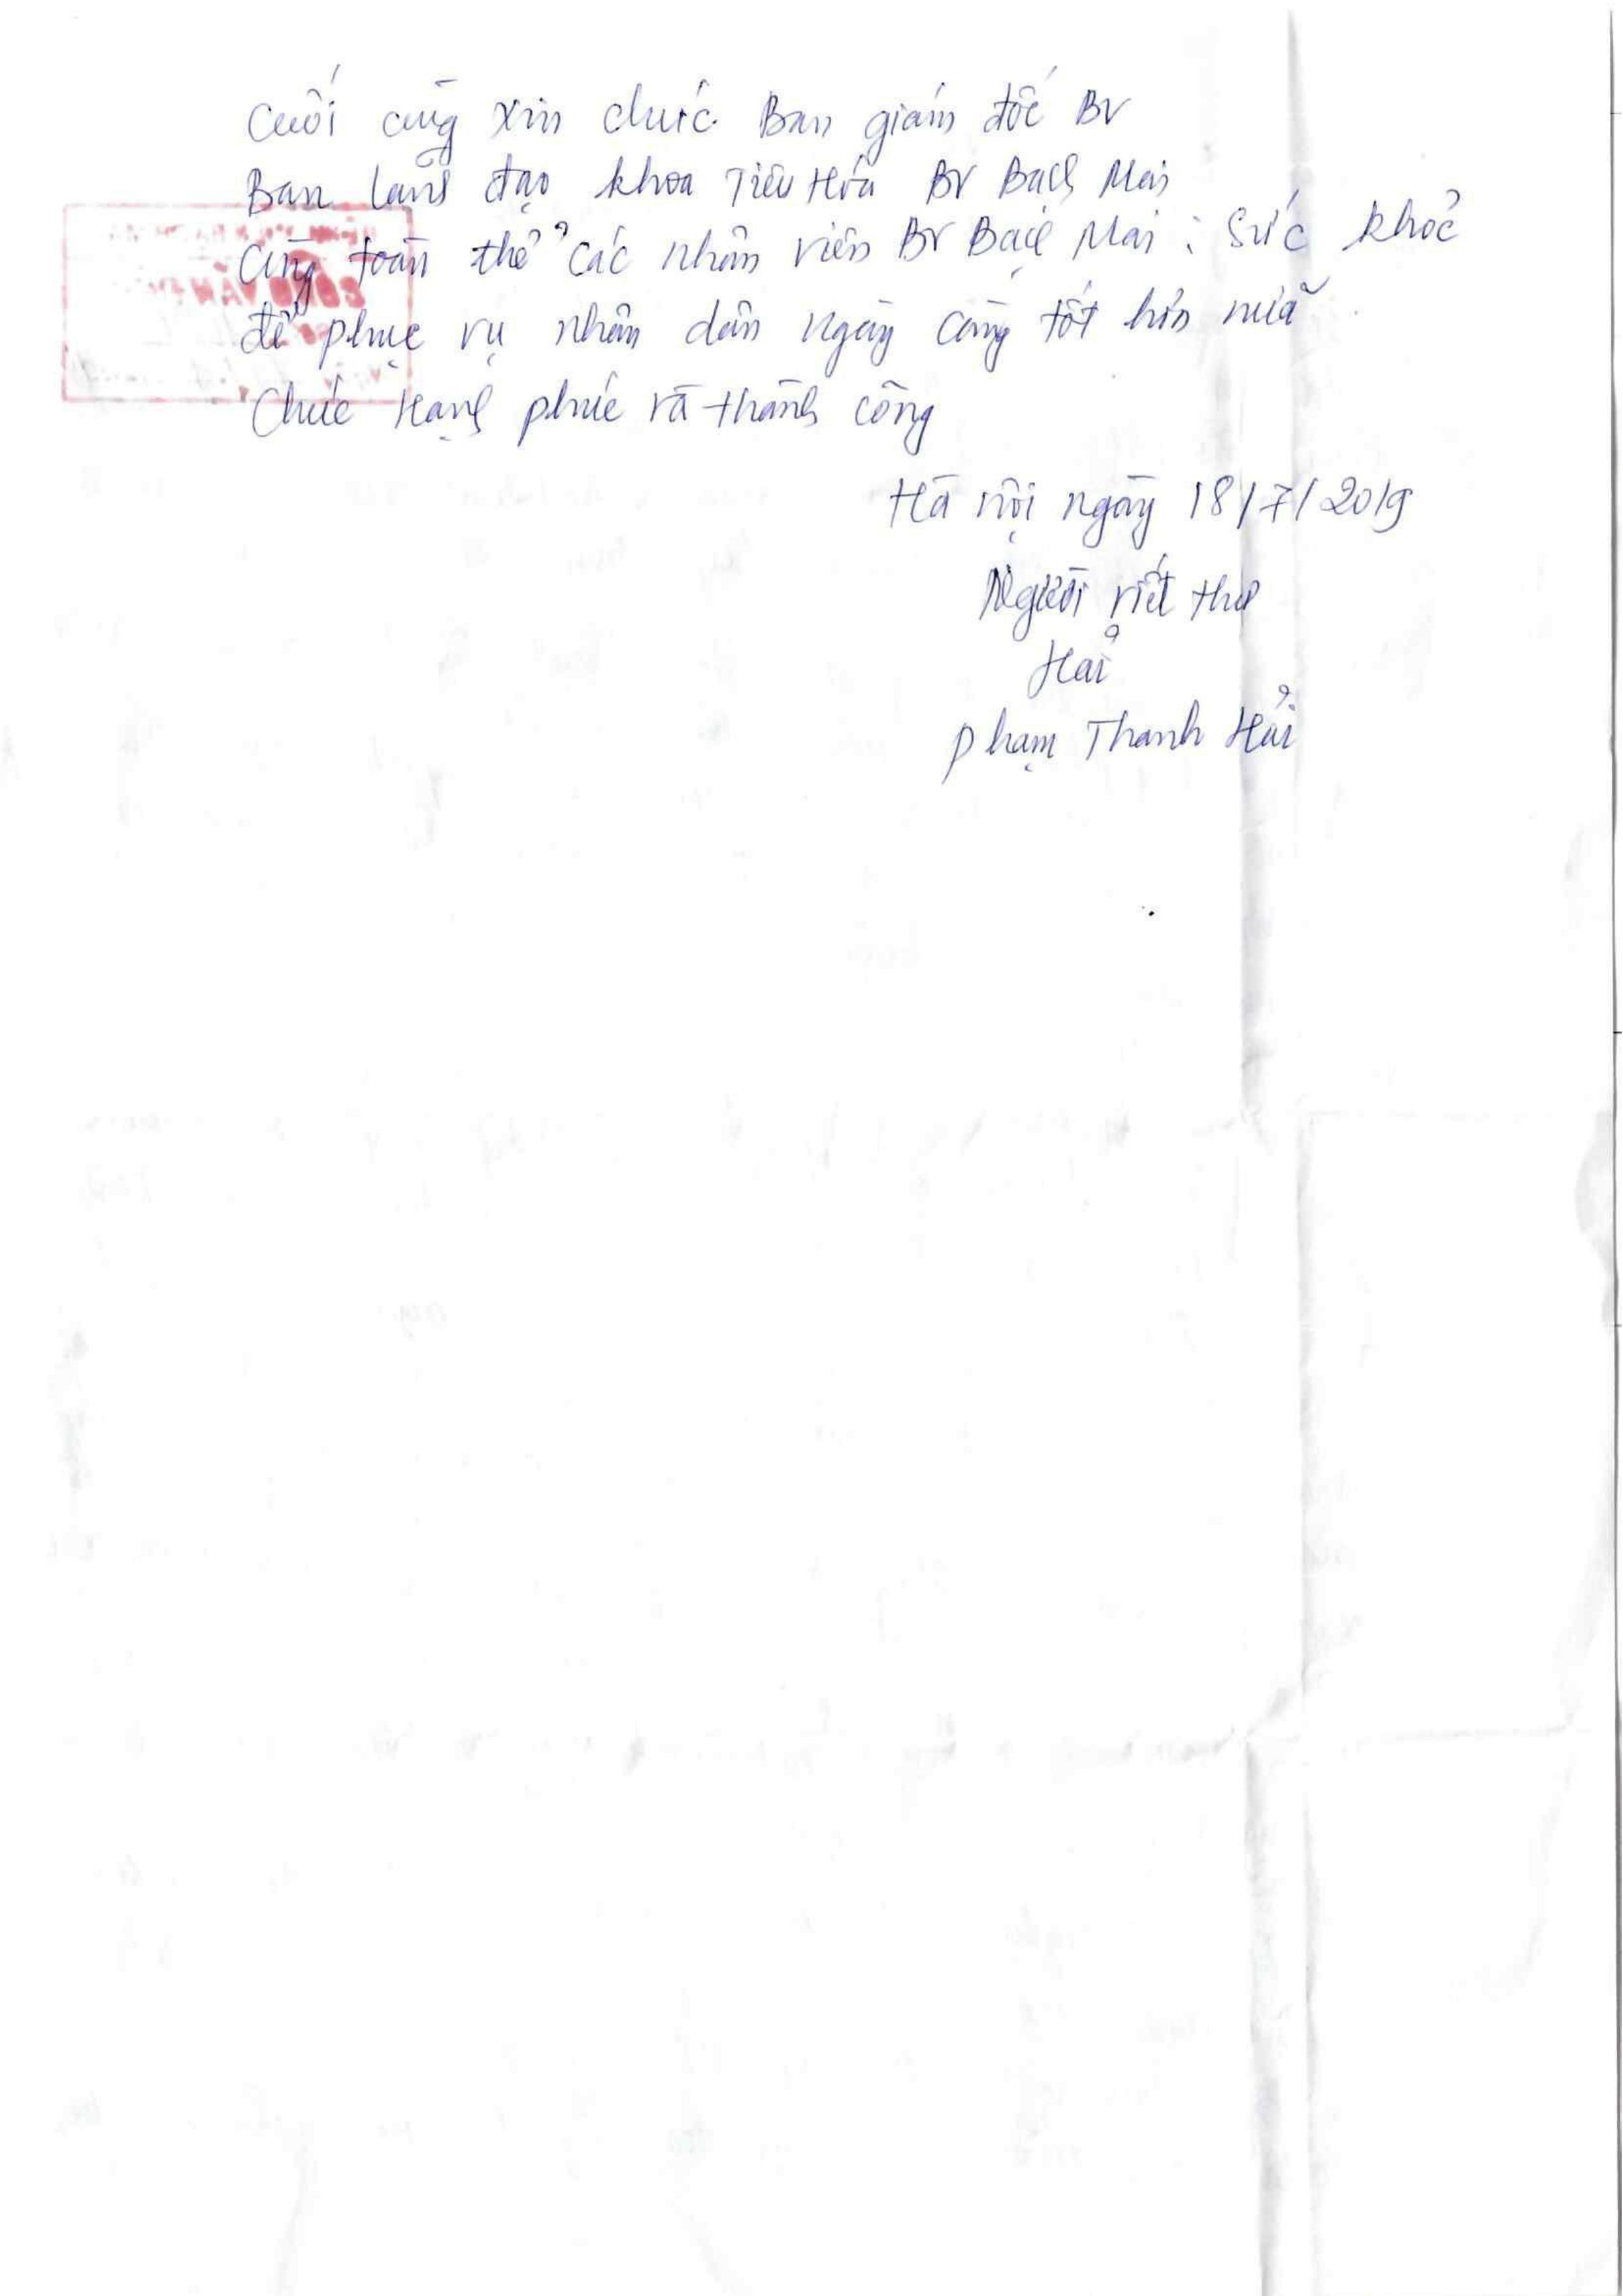 Cuối cùng xin chúc Ban giám đốc BV
Ban lãnh đạo khoa Tiêu Hóa BV Bạch Mai
Cùng toàn thể các nhân viên BV Bạch Mai : Sức khỏe
để phục vụ nhân dân ngày càng tốt hơn nữa
Chúc Hạnh phúc và thành công
Hà nội ngày 18/7/2019
Người viết thư
Hải
Phạm Thanh Hải